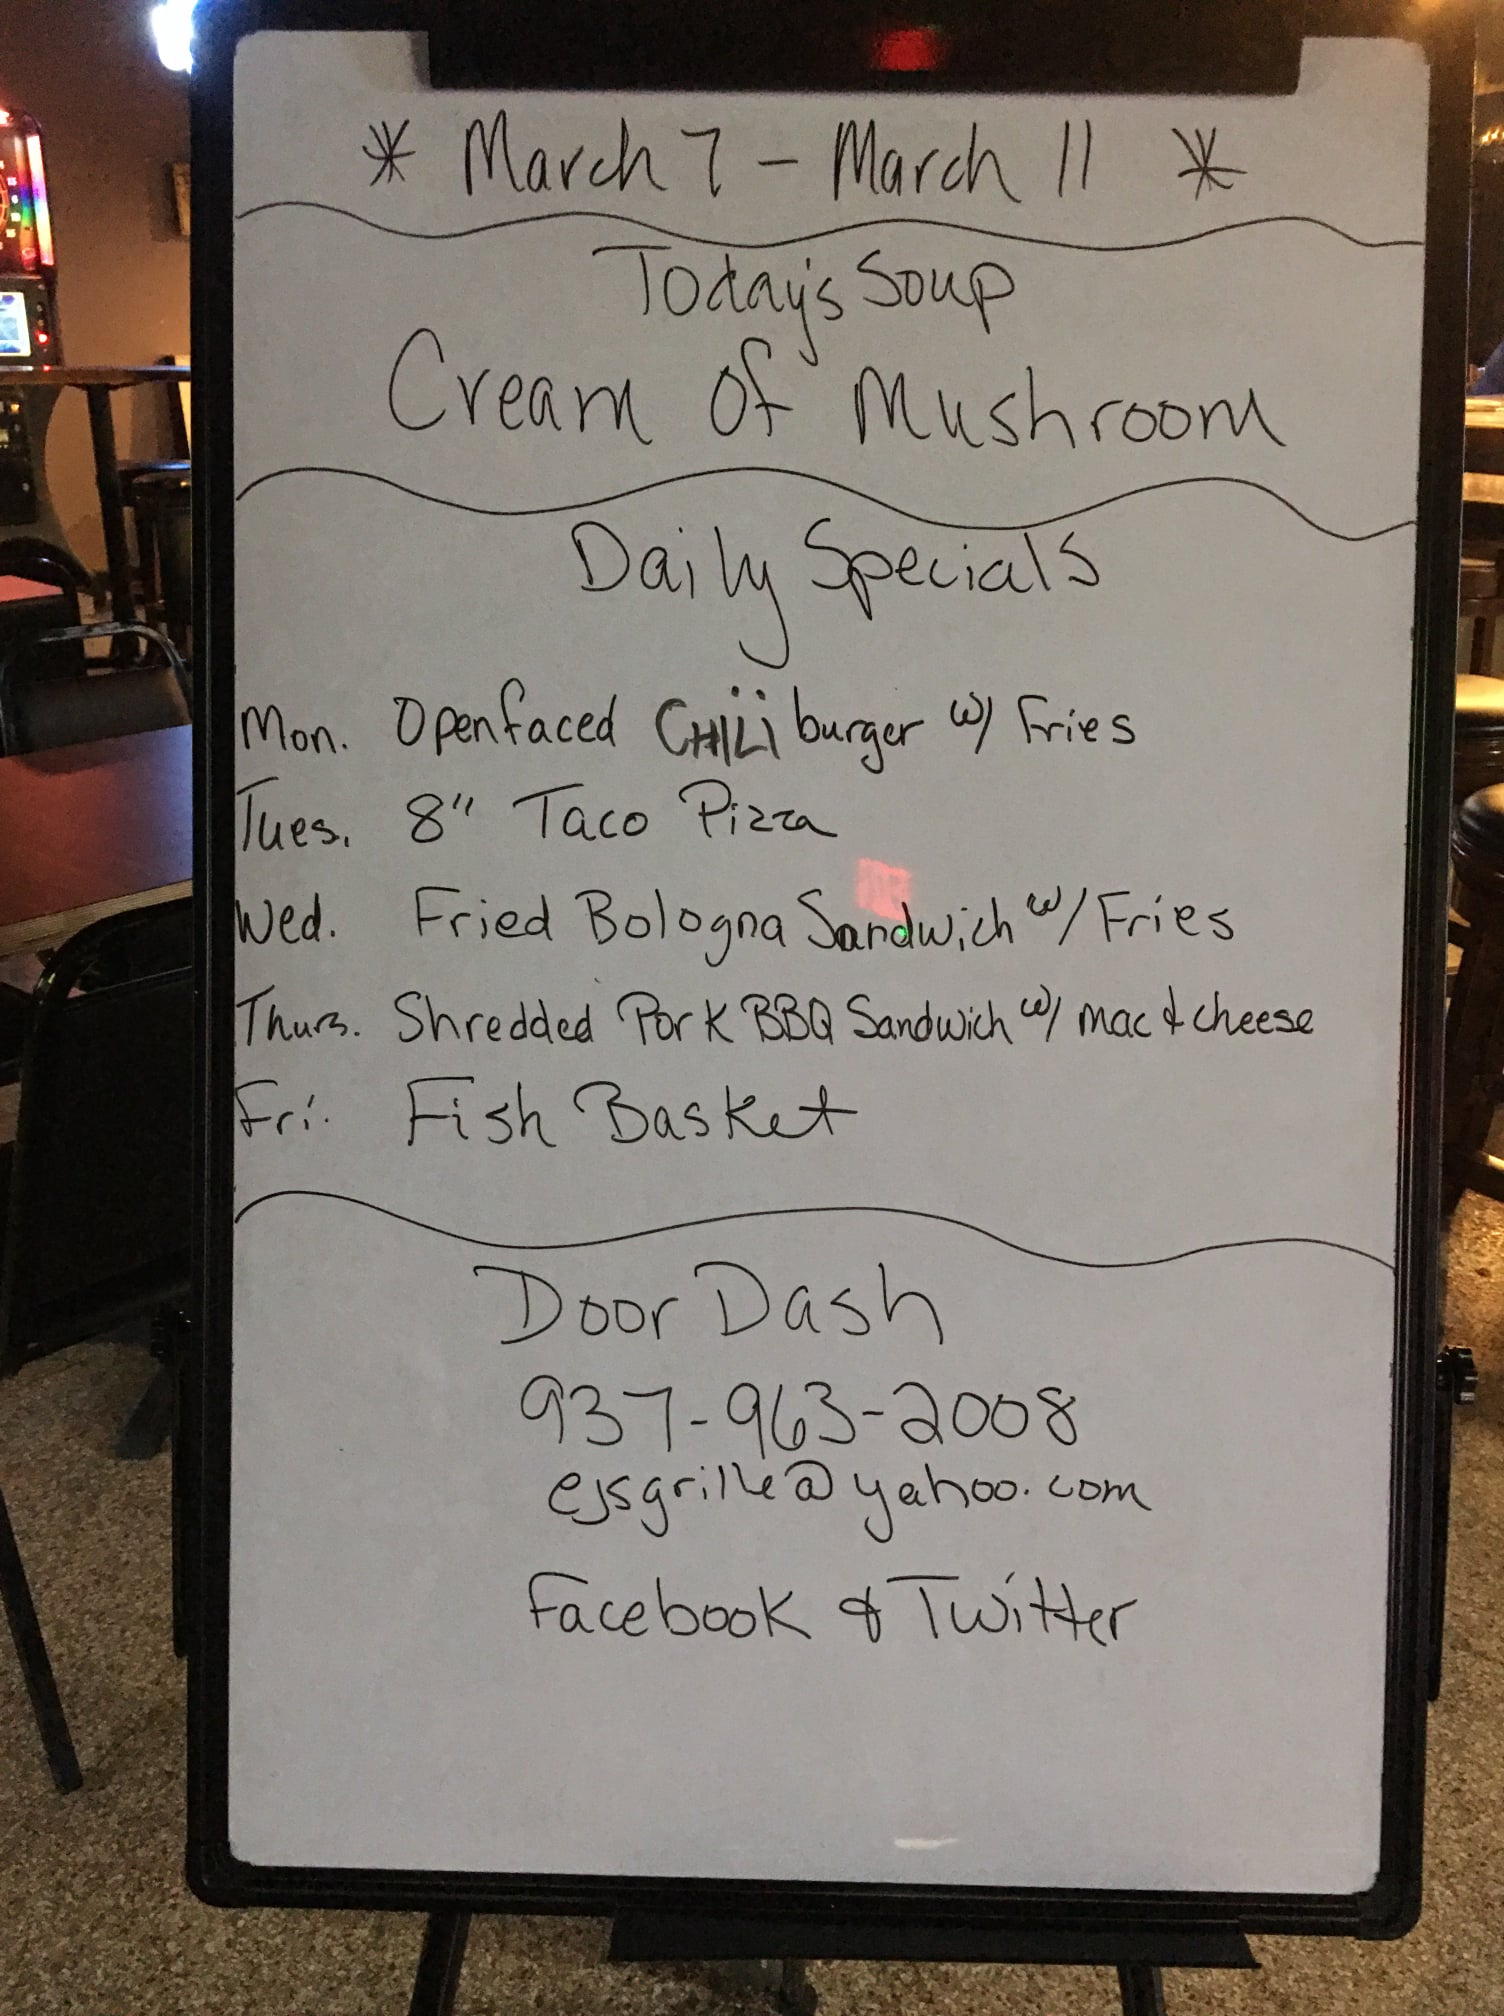 * March 7 - March 11 *
Today's Soup
Cream of Mushroom
Daily Specials
Mon. Openfaced CHiLi burger w/ Fries
Tues. 8" Taco Pizza
Wed. Fried Bologna Sandwich w/ Fries
Thurs. Shredded Pork BBQ Sandwich w/ mac & cheese
Fri. Fish Basket
Door Dash
937-963-2008
ejsgrille@yahoo.com
Facebook & Twitter